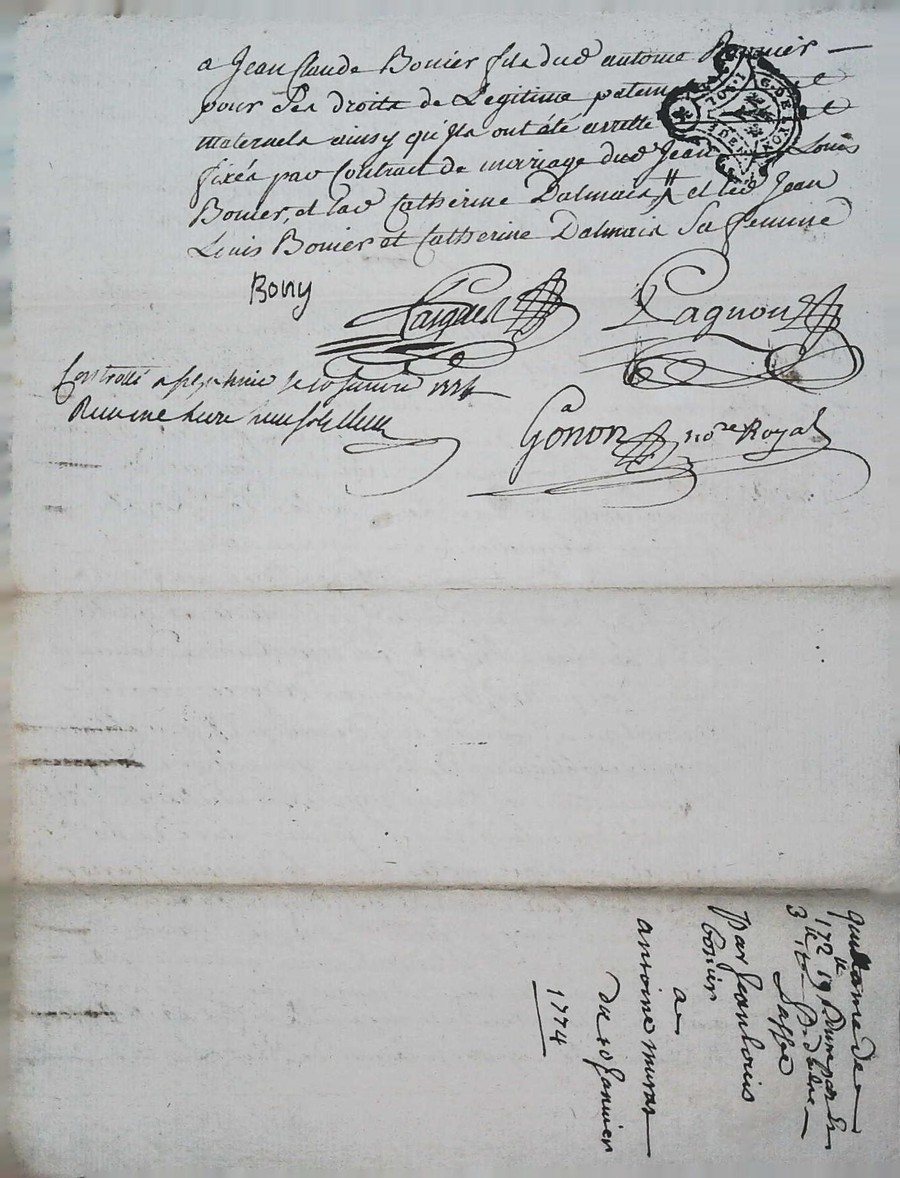 a Jean Claude Bonier fils dud antoine Bonnier
pour Ses droits de Legitime patern
maternels ainsy qu'ils ont été arretté
fixés par Contrat de mariage dud Jean Louis
Bonier, et lad Catherine Dalmais et led Jean
Louis Bonier et Catherine Dalmais Sa femme
G. DE LYON
1. SOL
Bony
Pagnon
Controllé a le 10 Janvier 1774
Reçu une livre neuf sols
Gonon nore Royal
quittance de
172 lt 19
3 lt
par Jean Louis
bonier
a
antoine muras
du 10 Janvier
1774